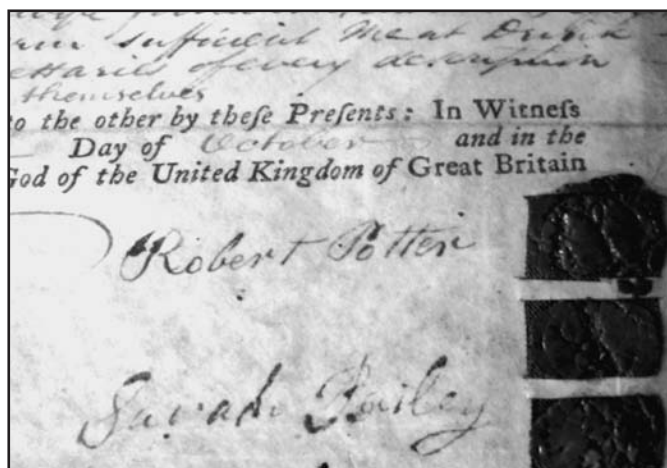 sufficient Meat Drink
of every description
themselves
to the other by theſe Preſents: In Witneſs
Day of October and in the
God of the United Kingdom of Great Britain
Robert Potter
Sarah Bailey